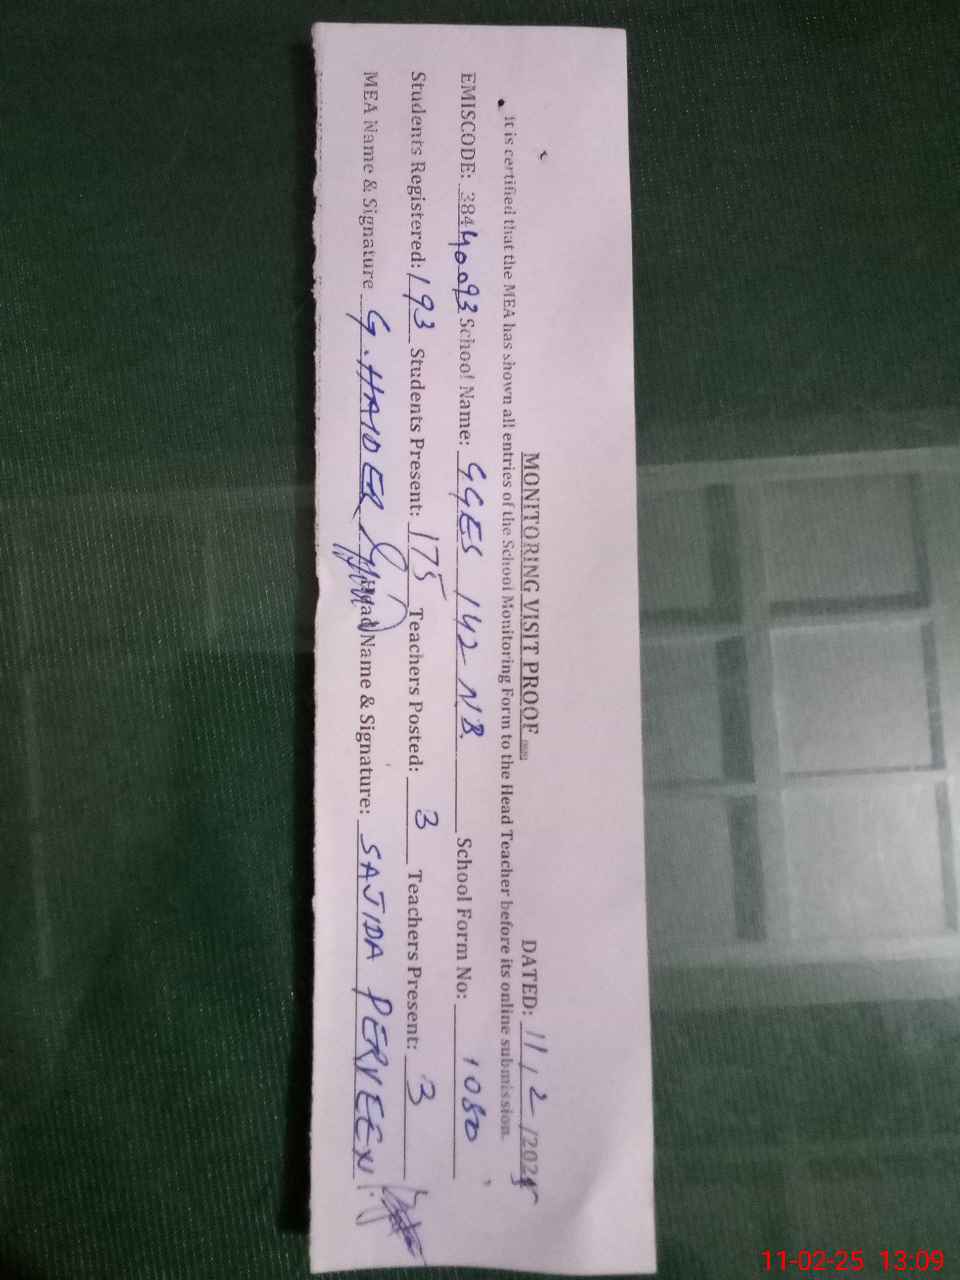 MONITORING VISIT PROOF DATED: 11/2/2025
It is certified that the MEA has shown all entries of the School Monitoring Form to the Head Teacher before its online submission.
EMISCODE: 38440093 School Name: GGES 142-NB School Form No: 1080
Students Registered: 193 Students Present: 175 Teachers Posted: 3 Teachers Present: 3
MEA Name & Signature G. HAIDER Head Name & Signature: SAJIDA PERVEEN
11-02-25 13:09